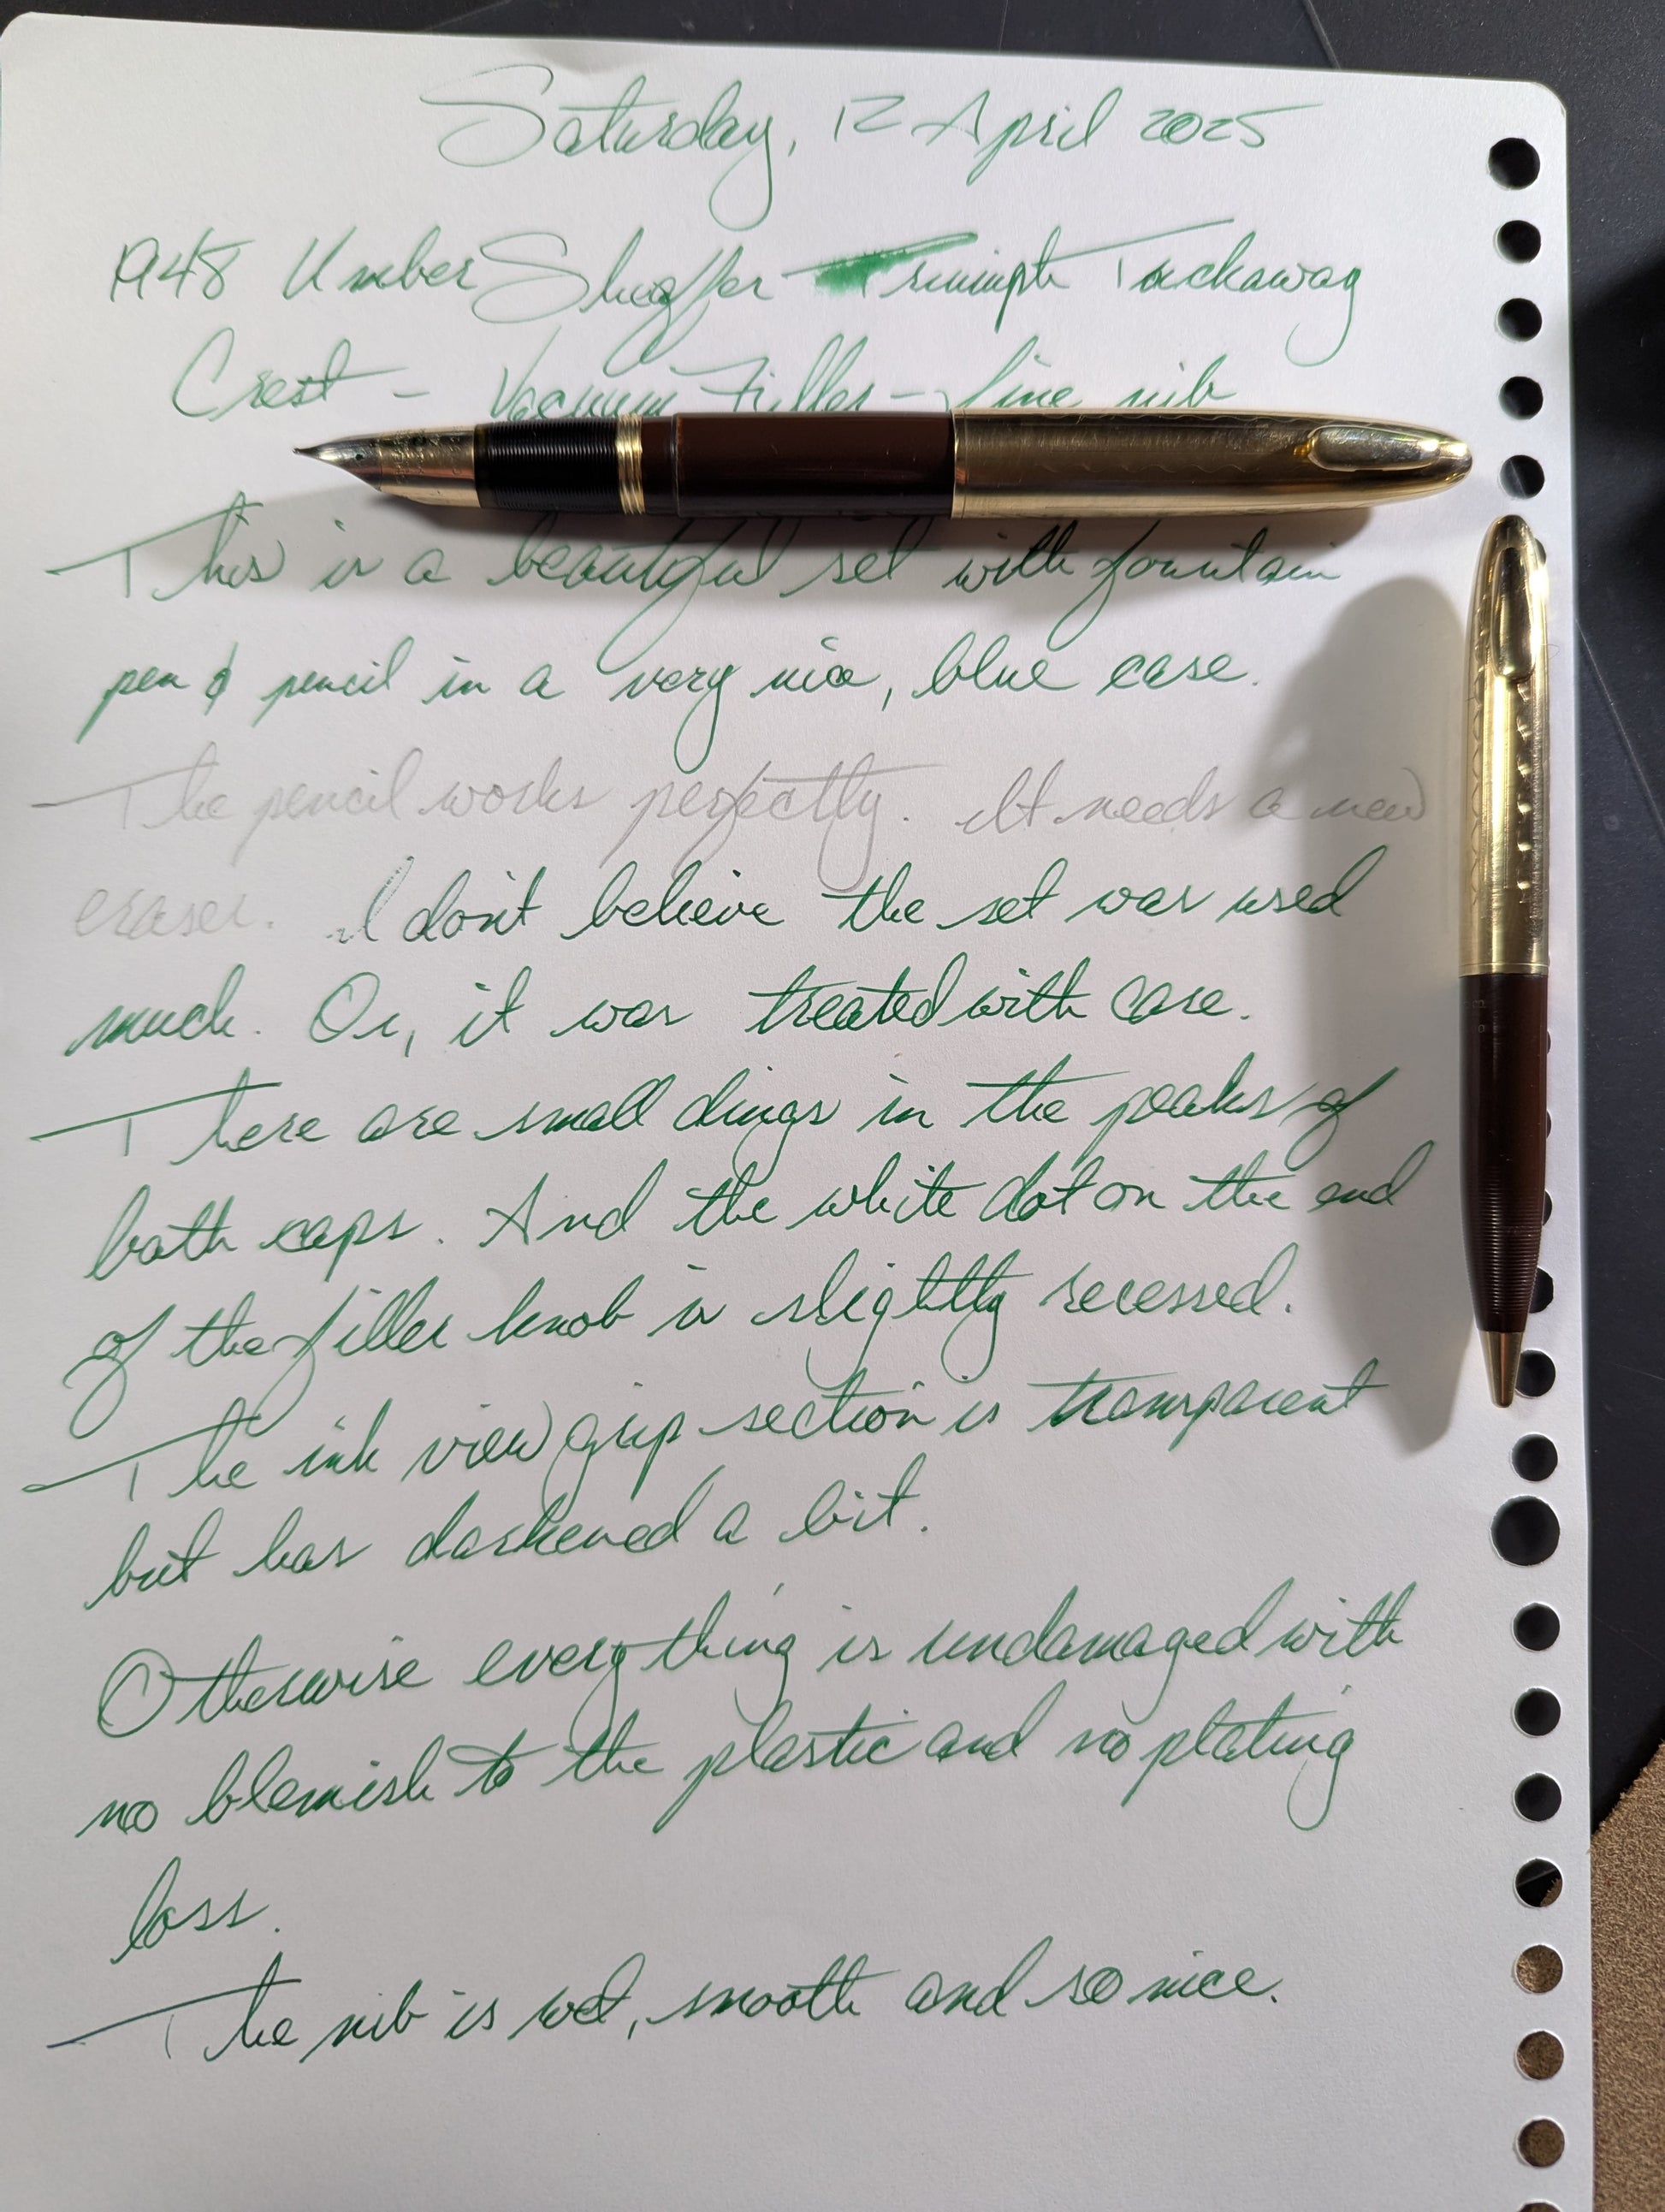 Saturday, 12 April 2025
1948 Umber Sheaffer Triumph Tuckaway
Crest – Vacuum Filler – fine nib
This is a beautiful set with fountain
pen & pencil in a very nice, blue case.
The pencil works perfectly. It needs a new
eraser. I don't believe the set was used
much. Or, it was treated with care.
There are small dings in the peaks of
both caps. And the white dot on the end
of the filler knob is slightly recessed.
The ink view grip section is transparent
but has darkened a bit.
Otherwise everything is undamaged with
no blemish to the plastic and no plating
loss.
The nib is wet, smooth and so nice.